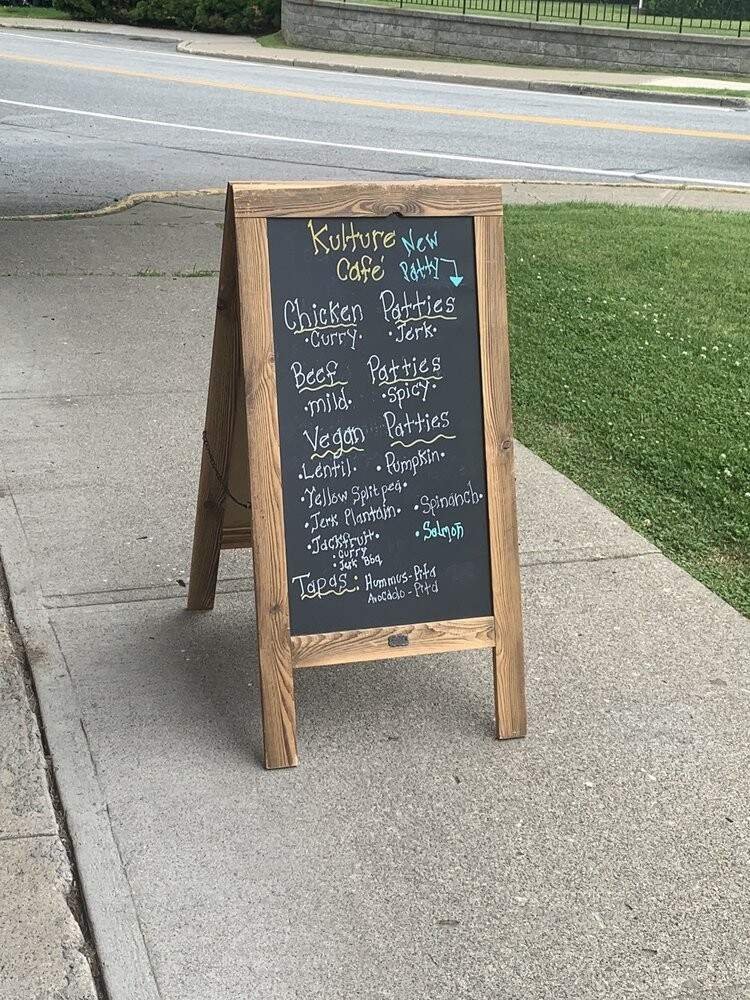 Kulture New
Café Patty
Chicken Patties
•Curry• •Jerk•
Beef Patties
•mild• •Spicy•
Vegan Patties
•Lentil• •Pumpkin•
•Yellow Split pea•
•Jerk Plantain• •Spinanch•
•Jackfruit• •Salmon
•Curry
•Jerk BBQ
Tapas: Hummus-Pita
Avocado-Pita